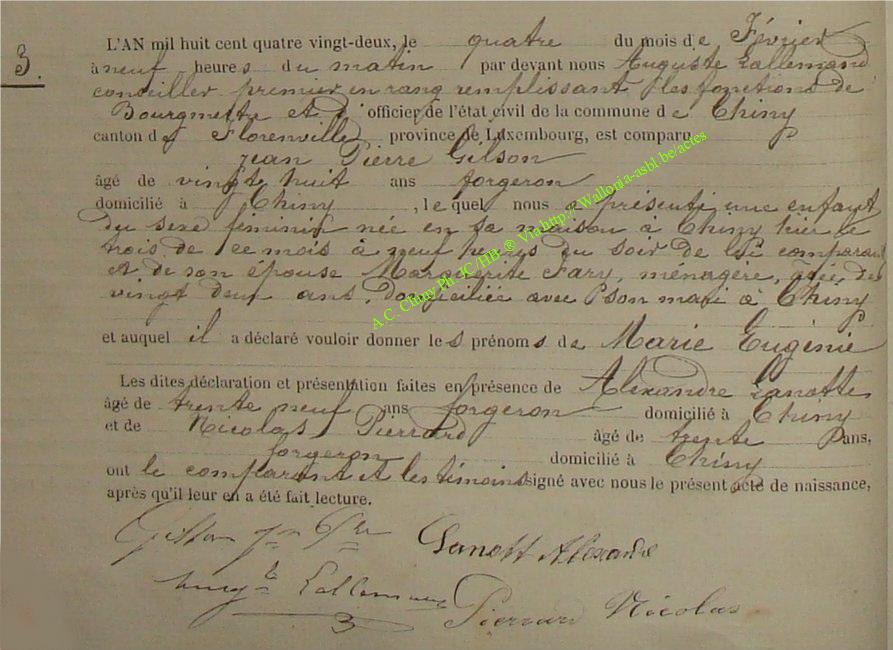 3.
L'AN mil huit cent quatre vingt-deux, le quatre du mois de Février
à neuf heures du matin par devant nous Auguste Lallemand
conseiller premier en rang remplissant les fonctions de
Bourgmestre et d' officier de l'état civil de la commune de Chiny
canton de Florenville province de Luxembourg, est comparu
Jean Pierre Gilson
âgé de vingt huit ans forgeron
domicilié à Chiny, lequel nous a présenté une enfant
du sexe féminin née en sa maison à Chiny hier le
trois de ce mois à neuf heures du soir de lui comparant
et de son épouse Marguerite Fary, ménagère, âgée de
vingt deux ans, domiciliée avec son mari à Chiny
et auquel il a déclaré vouloir donner les prénoms de Marie Eugénie
Les dites déclaration et présentation faites en présence de Alexandre Lanotte
âgé de trente neuf ans forgeron domicilié à Chiny
et de Nicolas Pierrard âgé de trente ans,
forgeron domicilié à Chiny
ont le comparant et les témoins signé avec nous le présent acte de naissance,
après qu'il leur en a été fait lecture.
Gilson Jn Pre Lanott Alexandre
Augte Lallemand Pierrard Nicolas
A.C. Chiny Ph. JC/HB ® Via http://Wallonia-asbl.be/actes